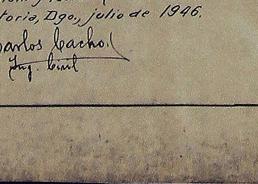 toria, Dgo., julio de 1946.
Carlos Cacho
Ing. Civil